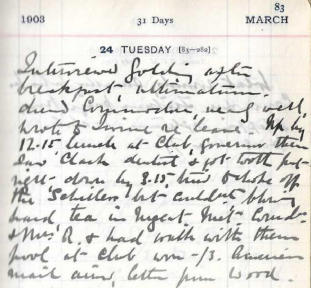 83
1903 31 Days MARCH
24 TUESDAY [83-282]
Interviewed Golding after
breakfast, ultimatum.
Commodore, very well,
wrote to re leave. Up by
12.15 lunch at Club, Governor there
Saw Clack dentist & got tooth put
right - down by 3.15, tried to hole off
the 'Schiller' but couldn't blow
hard tea in Regent Met
& Mrs R. & had walk with them
pool at Club won -/3. American
mail letter from Wood.